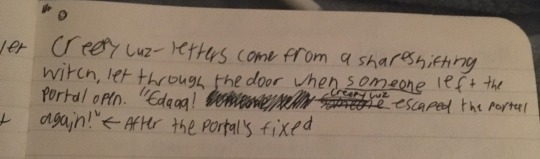 Creepy Luz- letters come from a shapeshifting
witch, let through the door when someone left the
portal open. "Edaaa! creepy luz escaped the portal
again!" ← After the portal's fixed